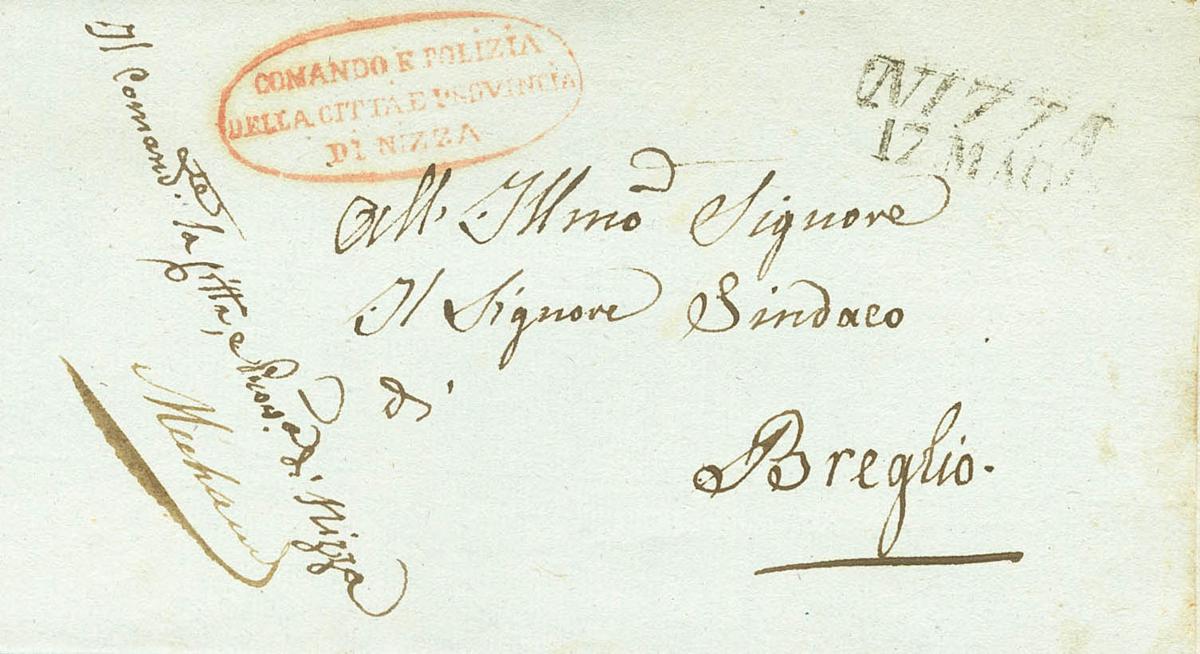 COMANDO E POLIZIA
DELLA CITTÀ E PROVINCIA
DI NIZZA
NIZZA
17 MAG
All. Illmo Signore
Il Signore Sindaco
di
Breglio.
Il Comand.te la Città, e Prov.a di Nizza